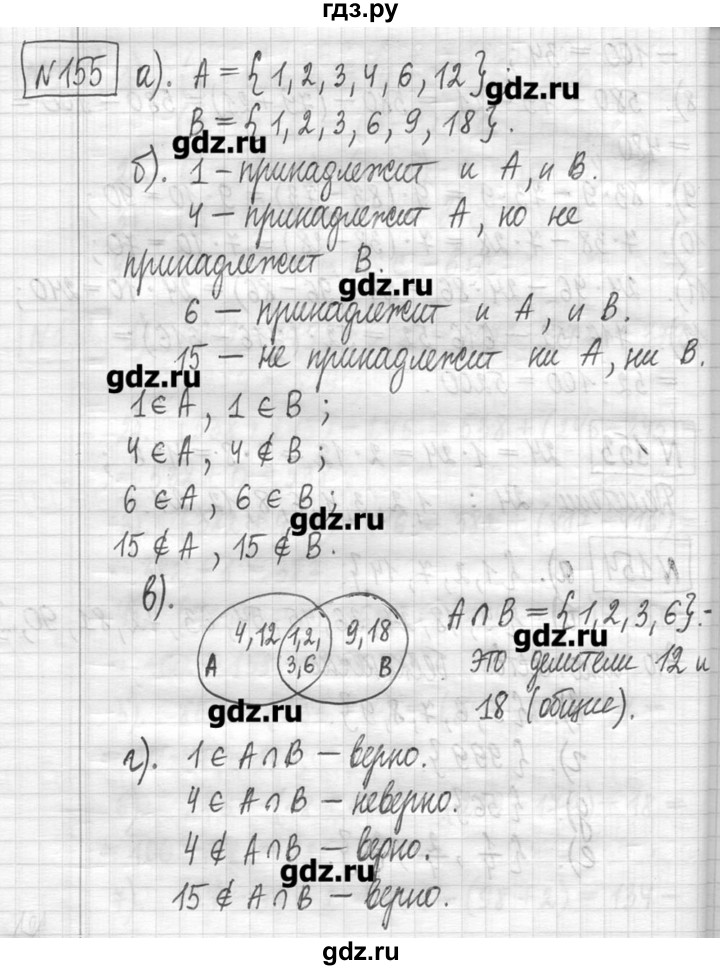 гдз.ру
№155 а). A = {1, 2, 3, 4, 6, 12};
gdz.ru
B = {1, 2, 3, 6, 9, 18}.
gdz.ru
б). 1 – принадлежит и A, и B.
4 – принадлежит A, но не
принадлежит B.
gdz.ru
6 – принадлежит и A, и B.
15 – не принадлежит ни A, ни B.
gdz.ru
1 ∈ A, 1 ∈ B;
4 ∈ A, 4 ∉ B;
6 ∈ A, 6 ∈ B;
gdz.ru
15 ∉ A, 15 ∉ B.
в).
4,12 1,2, 9,18
A 3,6 B
A∩B = {1, 2, 3, 6}.-
gdz.ru
это делители 12 и
18 (общие).
gdz.ru
г). 1 ∈ A∩B – верно.
4 ∈ A∩B – неверно.
4 ∉ A∩B – верно.
gdz.ru
15 ∉ A∩B – верно.
gdz.ru